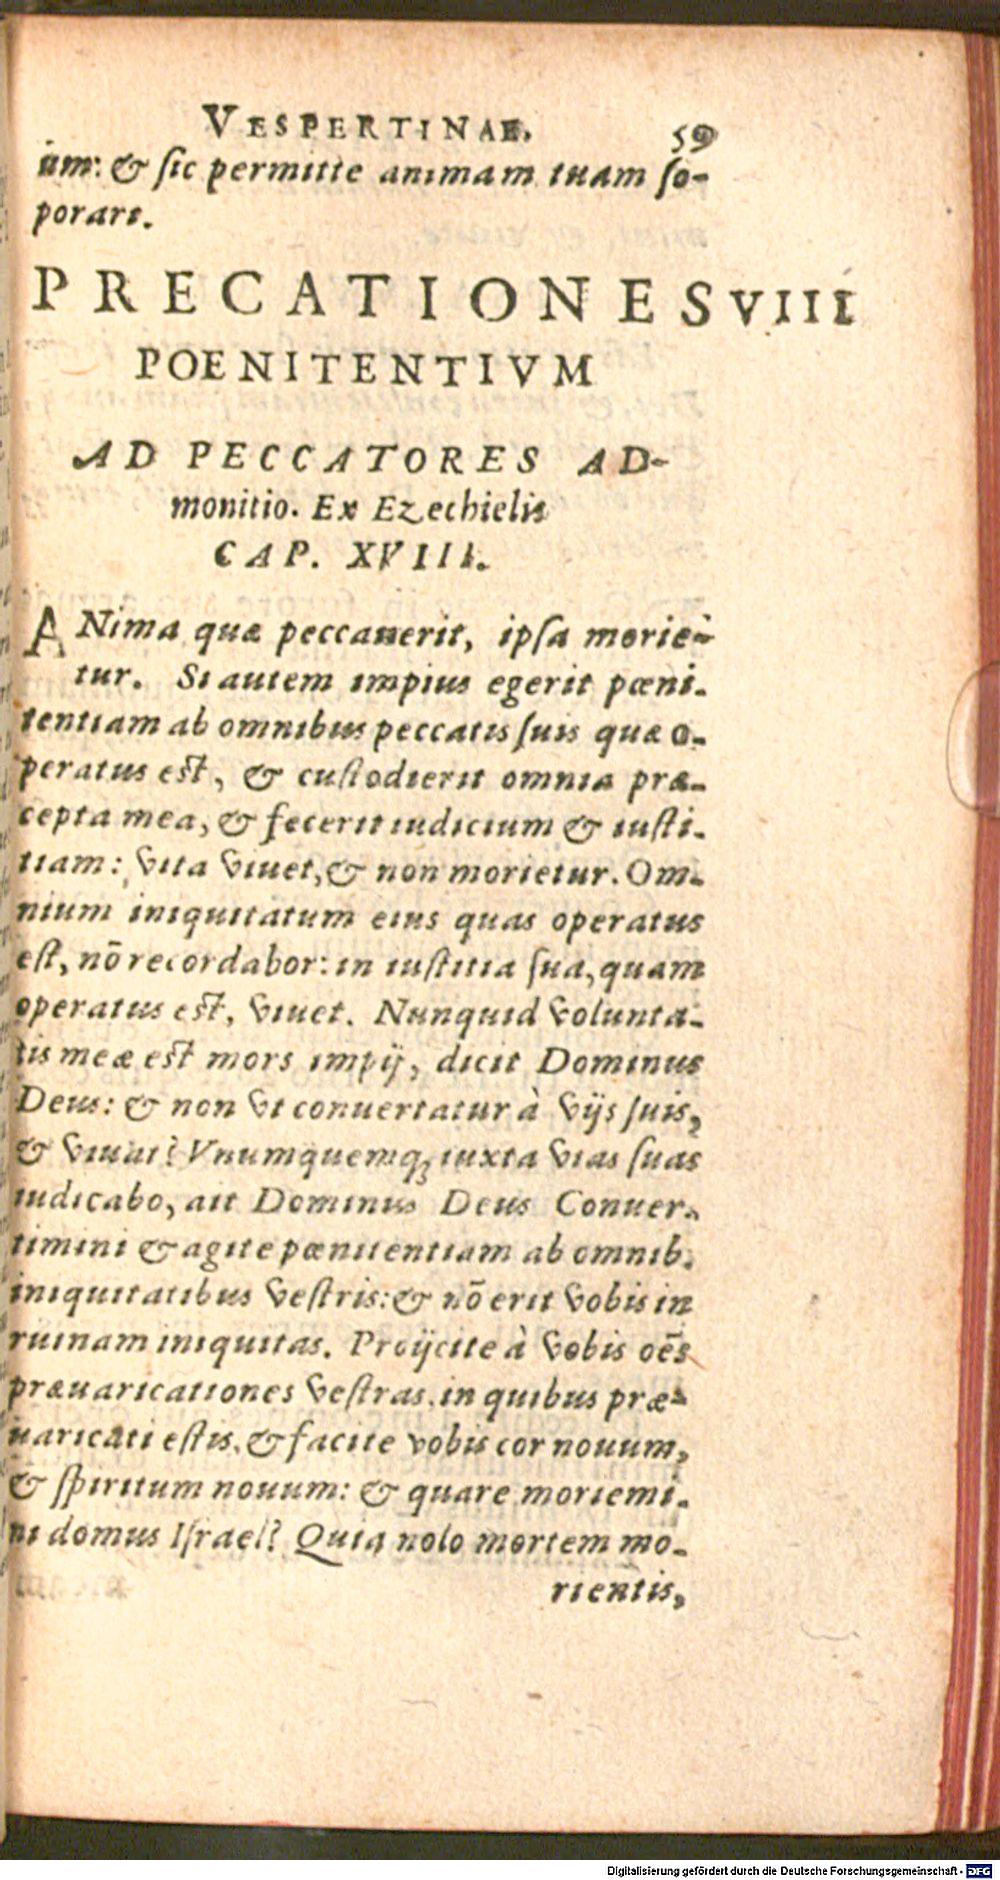 VESPERTINAE. 59
um: & sic permitte animam tuam so-
porari.
PRECATIONES VIII
POENITENTIVM
AD PECCATORES AD-
monitio. Ex Ezechielis
CAP. XVIII.
ANima quæ peccauerit, ipsa morie-
tur. Si autem impius egerit pœni-
tentiam ab omnibus peccatis suis quæ o-
peratus est, & custodierit omnia præ-
cepta mea, & fecerit iudicium & iusti-
tiam: vita viuet, & non morietur. Om-
nium iniquitatum eius quas operatus
est, nõ recordabor: in iustitia sua, quam
operatus est, viuet. Nunquid volunta-
tis meæ est mors impij, dicit Dominus
Deus: & non vt conuertatur à vijs suis,
& viuat? Vnumquemq; iuxta vias suas
iudicabo, ait Dominus Deus Conuer-
timini & agite pœnitentiam ab omnib.
iniquitatibus vestris: & nõ erit vobis in
ruinam iniquitas. Proijcite à vobis oẽs
præuaricationes vestras, in quibus præ-
uaricati estis, & facite vobis cor nouum,
& spiritum nouum: & quare moriemi-
ni domus Israel? Quia nolo mortem mo-
rientis,
Digitalisierung gefördert durch die Deutsche Forschungsgemeinschaft - DFG